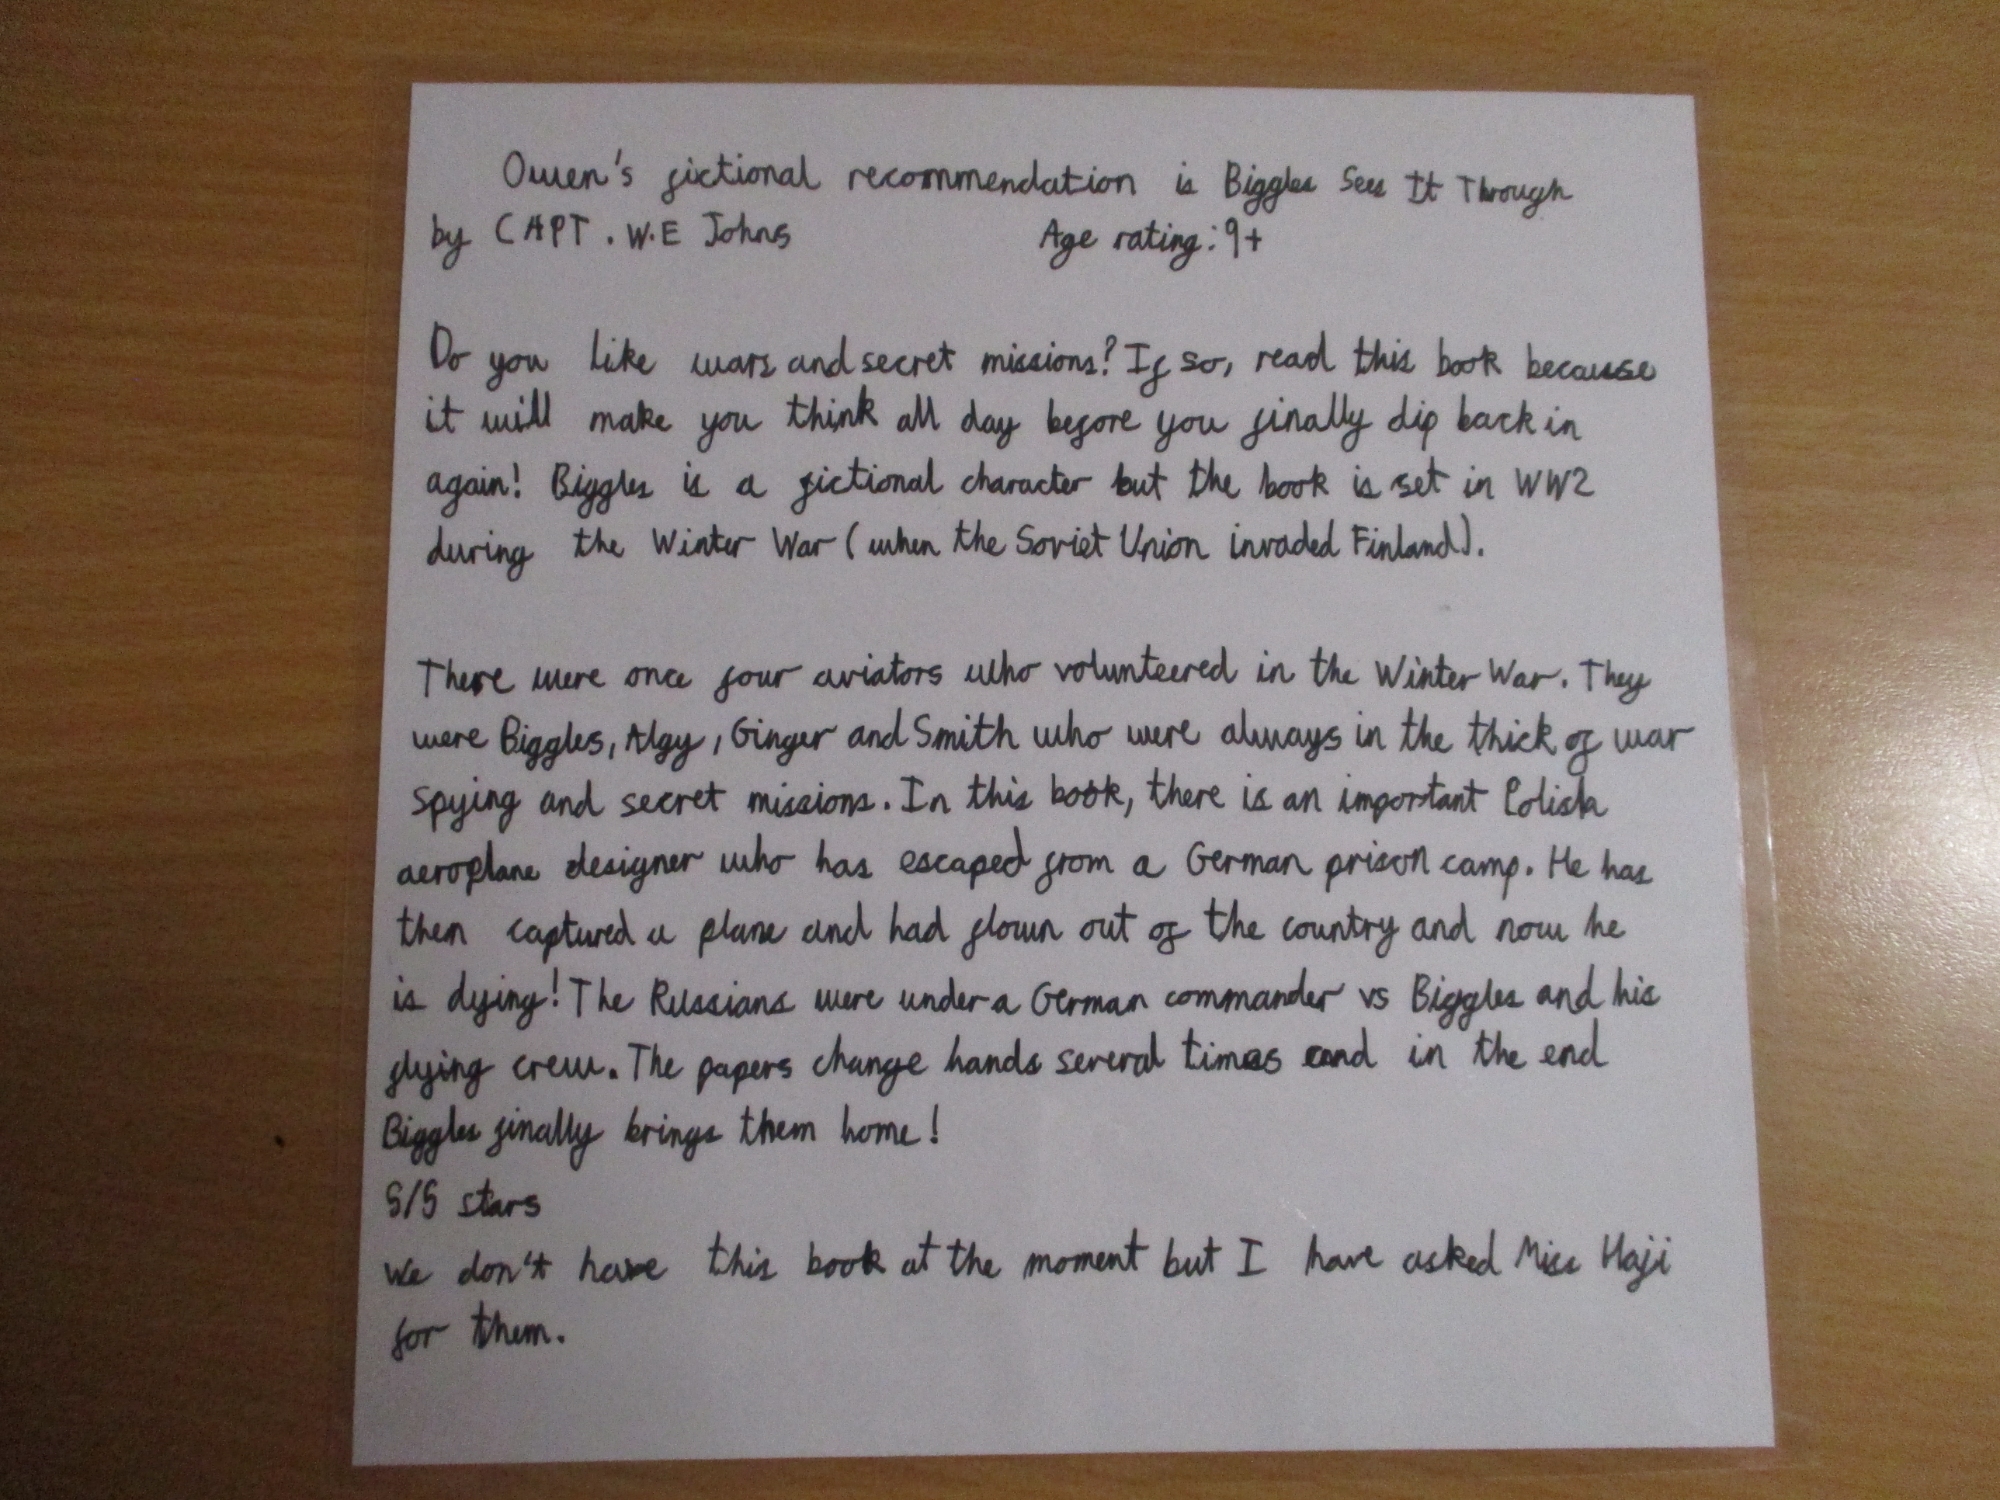 Owen's fictional recommendation is Biggles Sees It Through
by CAPT. W.E Johns Age rating: 9+
Do you like wars and secret missions? If so, read this book because
it will make you think all day before you finally dip back in
again! Biggles is a fictional character but the book is set in WW2
during the Winter War (when the Soviet Union invaded Finland).
There were once four aviators who volunteered in the Winter War. They
were Biggles, Algy, Ginger and Smith who were always in the thick of war
spying and secret missions. In this book, there is an important Polish
aeroplane designer who has escaped from a German prison camp. He has
then captured a plane and had flown out of the country and now he
is dying! The Russians were under a German commander vs Biggles and his
flying crew. The papers change hands several times and in the end
Biggles finally brings them home!
5/5 stars
We don't have this book at the moment but I have asked Miss Haji
for them.